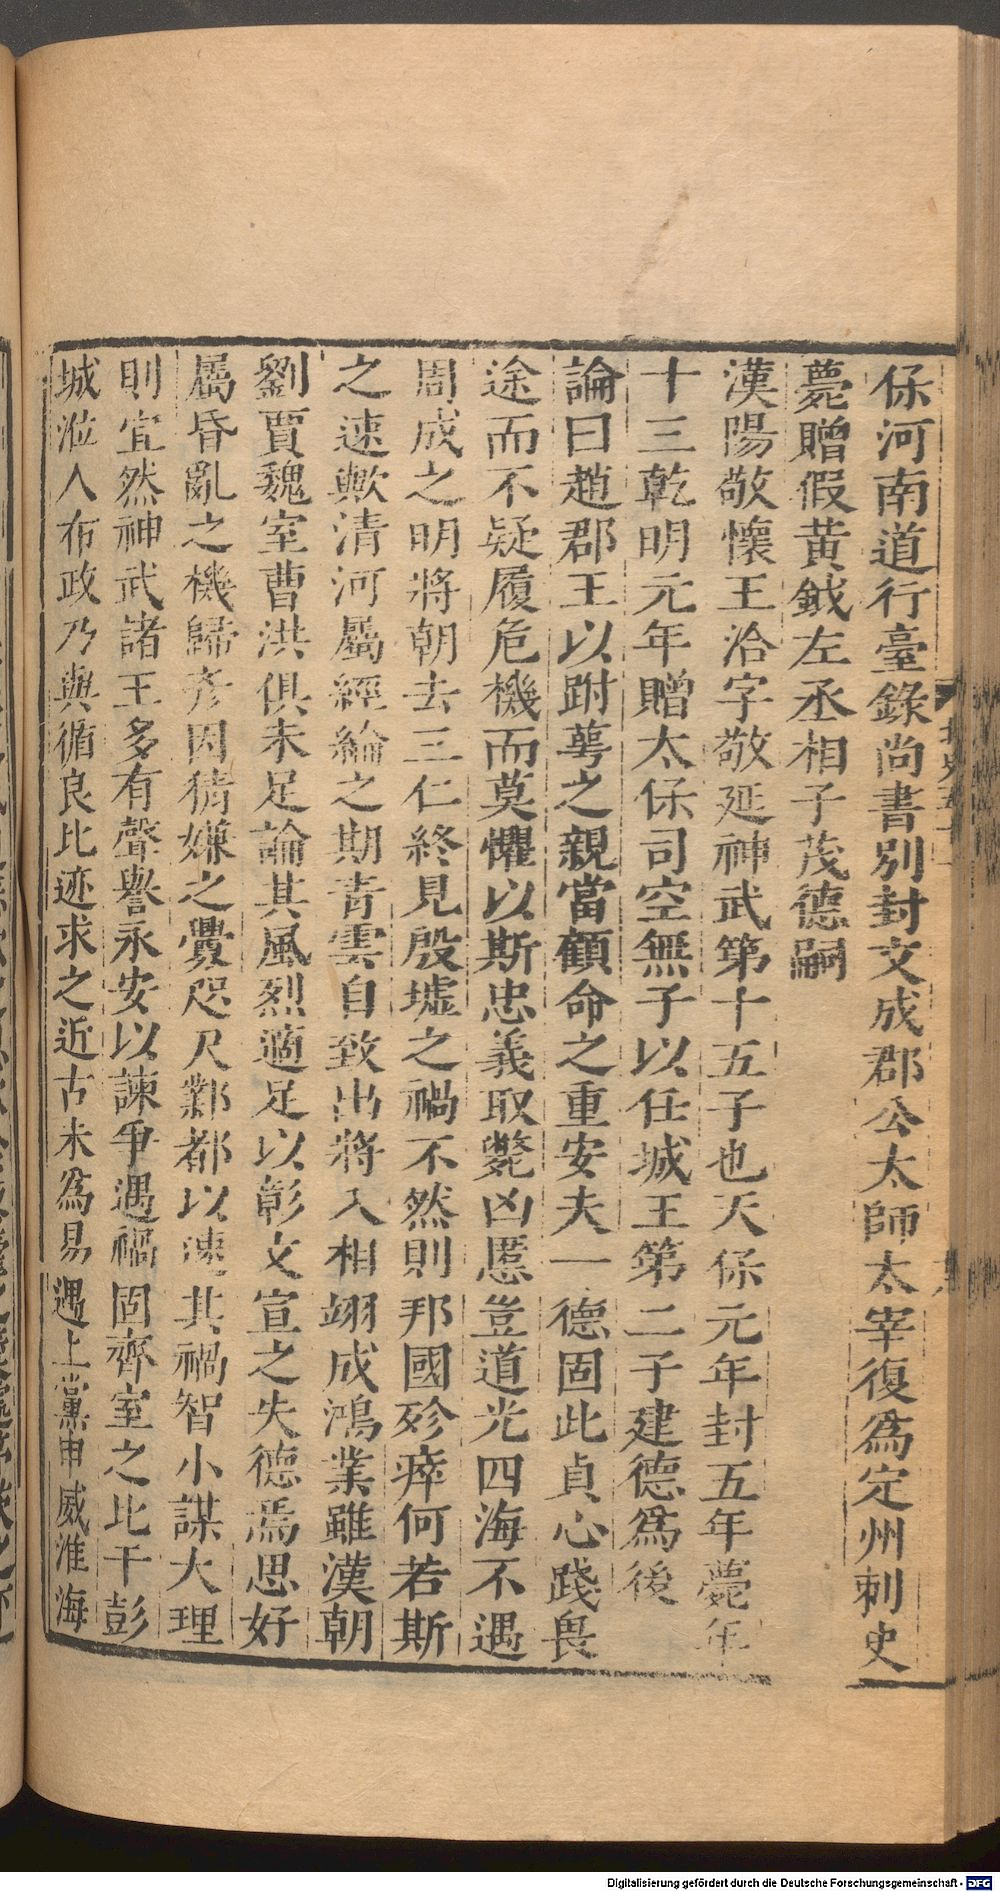 保河南道行臺錄尚書別封文成郡公太師太宰復爲定州刺史
薨贈假黃鉞左丞相子茂德嗣
漢陽敬懷王洽字敬延神武第十五子也天保元年封五年薨年
十三乾明元年贈太保司空無子以任城王第二子建德爲後
論曰趙郡王以跗萼之親當顧命之重安夫一德固此貞心踐畏
途而不疑履危機而莫懼以斯忠義取斃凶慝豈道光四海不遇
周成之明將朝去三仁終見殷墟之禍不然則邦國殄瘁何若斯
之速歟清河屬經綸之期青雲自致出將入相翊成鴻業雖漢朝
劉賈魏室曹洪俱未足論其風烈適足以彰文宣之失德焉思好
屬昏亂之機歸彥因猜嫌之釁咫尺鄴都以速其禍智小謀大理
則宜然神武諸王多有聲譽永安以諫爭遇禍固齊室之比干彭
城涖人布政乃與循良比迹求之近古未爲易遇上黨申威淮海
Digitalisierung gefördert durch die Deutsche Forschungsgemeinschaft - DFG